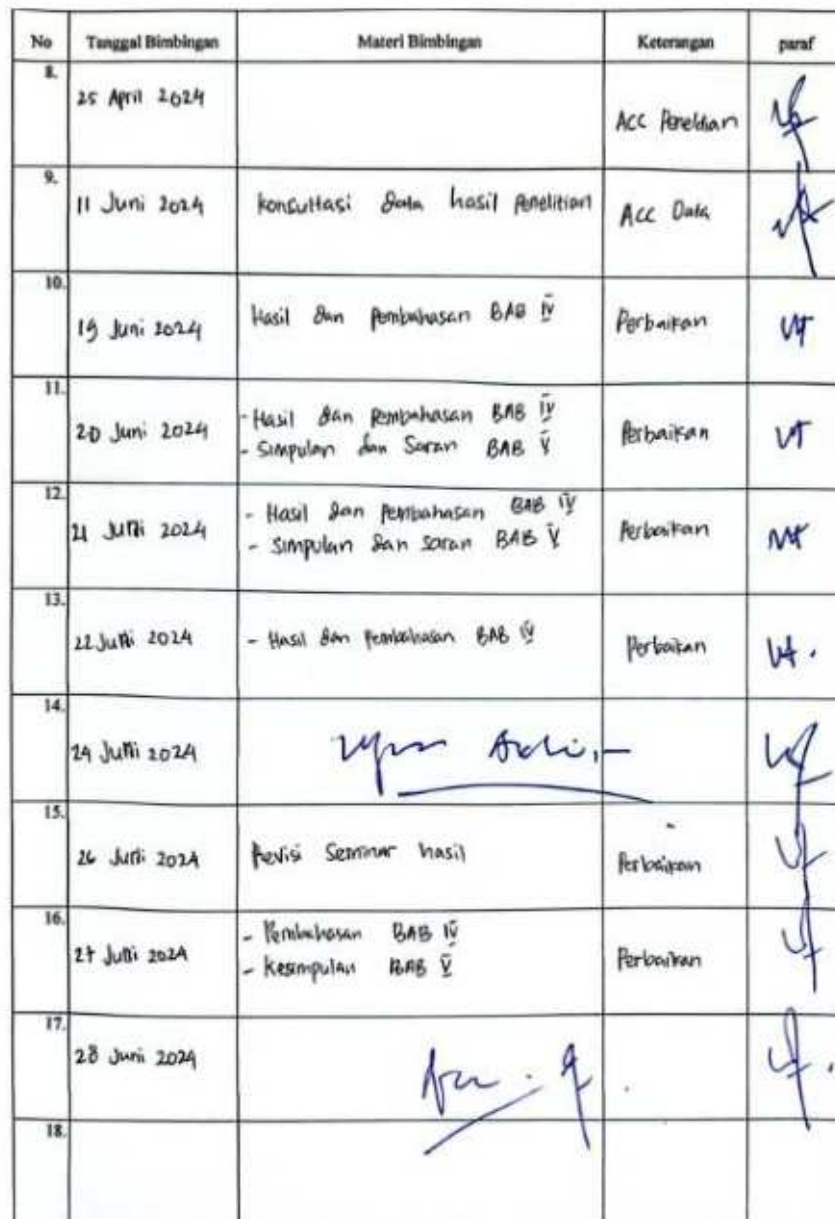 No Tanggal Bimbingan Materi Bimbingan Keterangan paraf
8.
25 April 2024 Acc Penelitian
9.
11 Juni 2024 konsultasi data hasil Penelitian Acc Data
10.
19 Juni 2024 Hasil dan Pembahasan BAB IV Perbaikan
11.
20 Juni 2024 - Hasil dan Pembahasan BAB IV Perbaikan
- Simpulan dan Saran BAB V
12.
21 Juni 2024 - Hasil dan Pembahasan BAB IV Perbaikan
- Simpulan dan saran BAB V
13.
22 Juni 2024 - Hasil dan Pembahasan BAB IV Perbaikan
14.
24 Juni 2024
15.
26 Juni 2024 Revisi Seminar hasil Perbaikan
16.
27 Juni 2024 - Pembahasan BAB IV Perbaikan
- Kesimpulan BAB V
17.
28 Juni 2024
18.